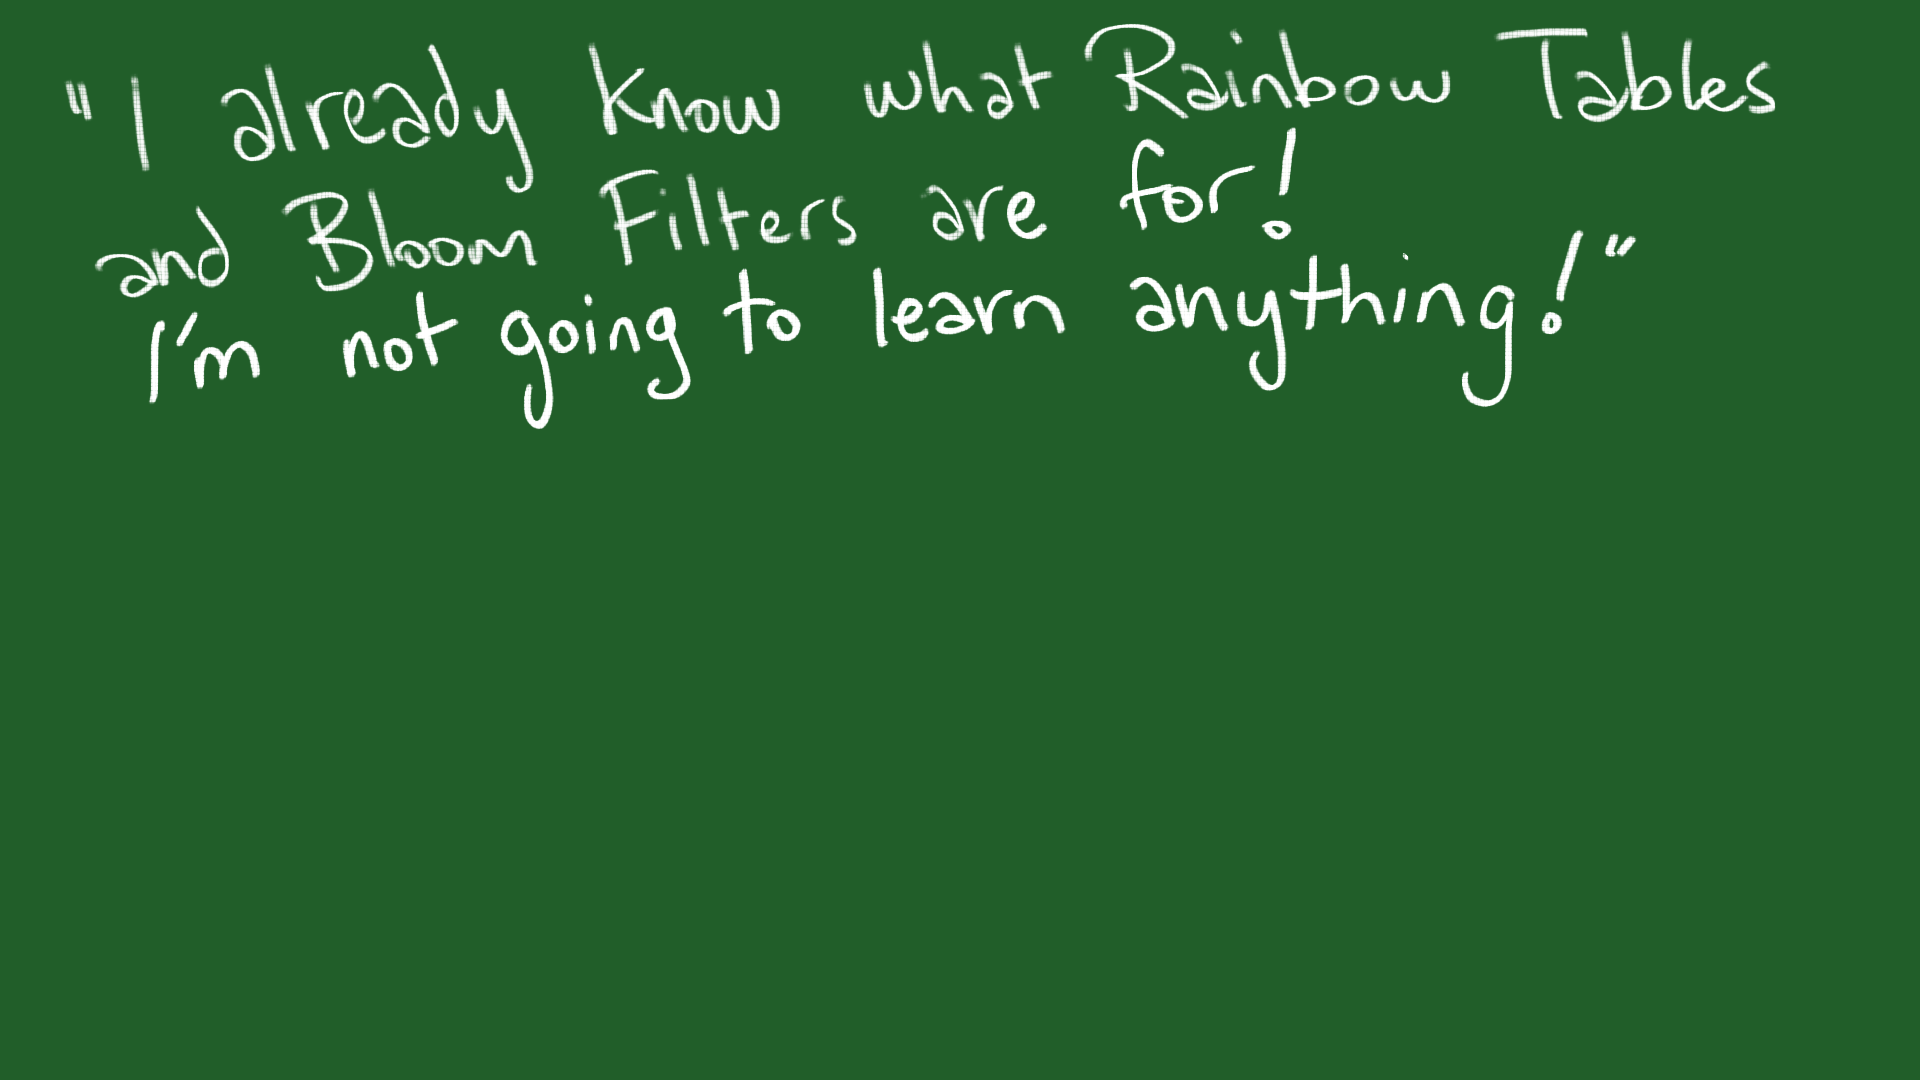 "I already know what Rainbow Tables
and Bloom Filters are for!
I'm not going to learn anything!"